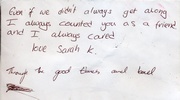 Even if we didn't always get along
I always counted you as a friend
and I always cared
love Sarah K.
Through the good times and bad